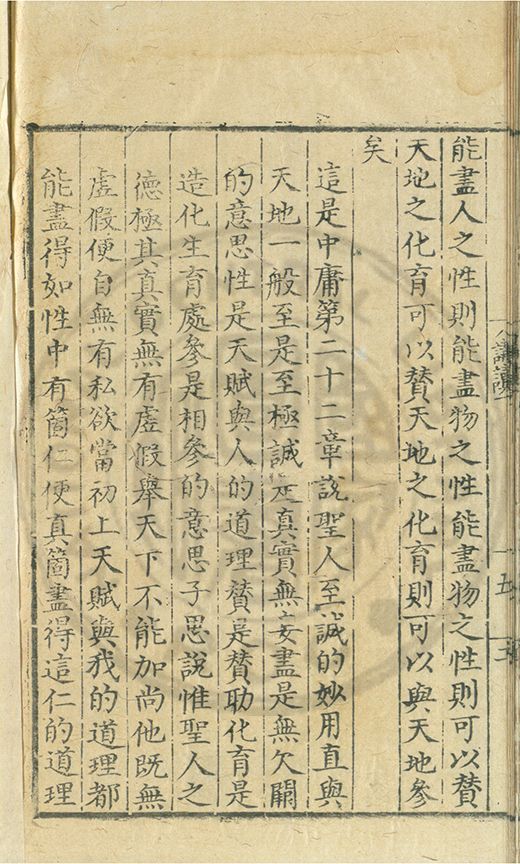 能盡人之性則能盡物之性能盡物之性則可以賛
天地之化育可以賛天地之化育則可以與天地參
矣
這是中庸第二十二章說聖人至誠的妙用直與
天地一般至是至極誠是真實無妄盡是無欠闕
的意思性是天賦與人的道理賛是賛助化育是
造化生育處參是相參的意思子思說惟聖人之
德極其真實無有虛假舉天下不能加尚他既無
虛假便自無有私欲當初上天賦與我的道理都
能盡得如性中有箇仁便真箇盡得這仁的道理